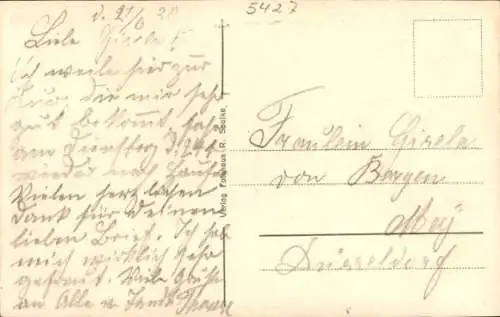 5427
d. 21/6 30
Liebe Gisela!
Ich weile hier zur
Kur, die mir sehr
gut bekommt, fahre
am Dienstag d. 24.
wieder nach Hause
Vielen herzlichen
Dank für deinen
lieben Brief. Ich hab
mich wirklich sehr
gefreut. Viele Grüße
an Alle v. Tante
Verlag Fotohaus R. Stolke,
Fräulein Gisela
von Bergen
Düsseldorf